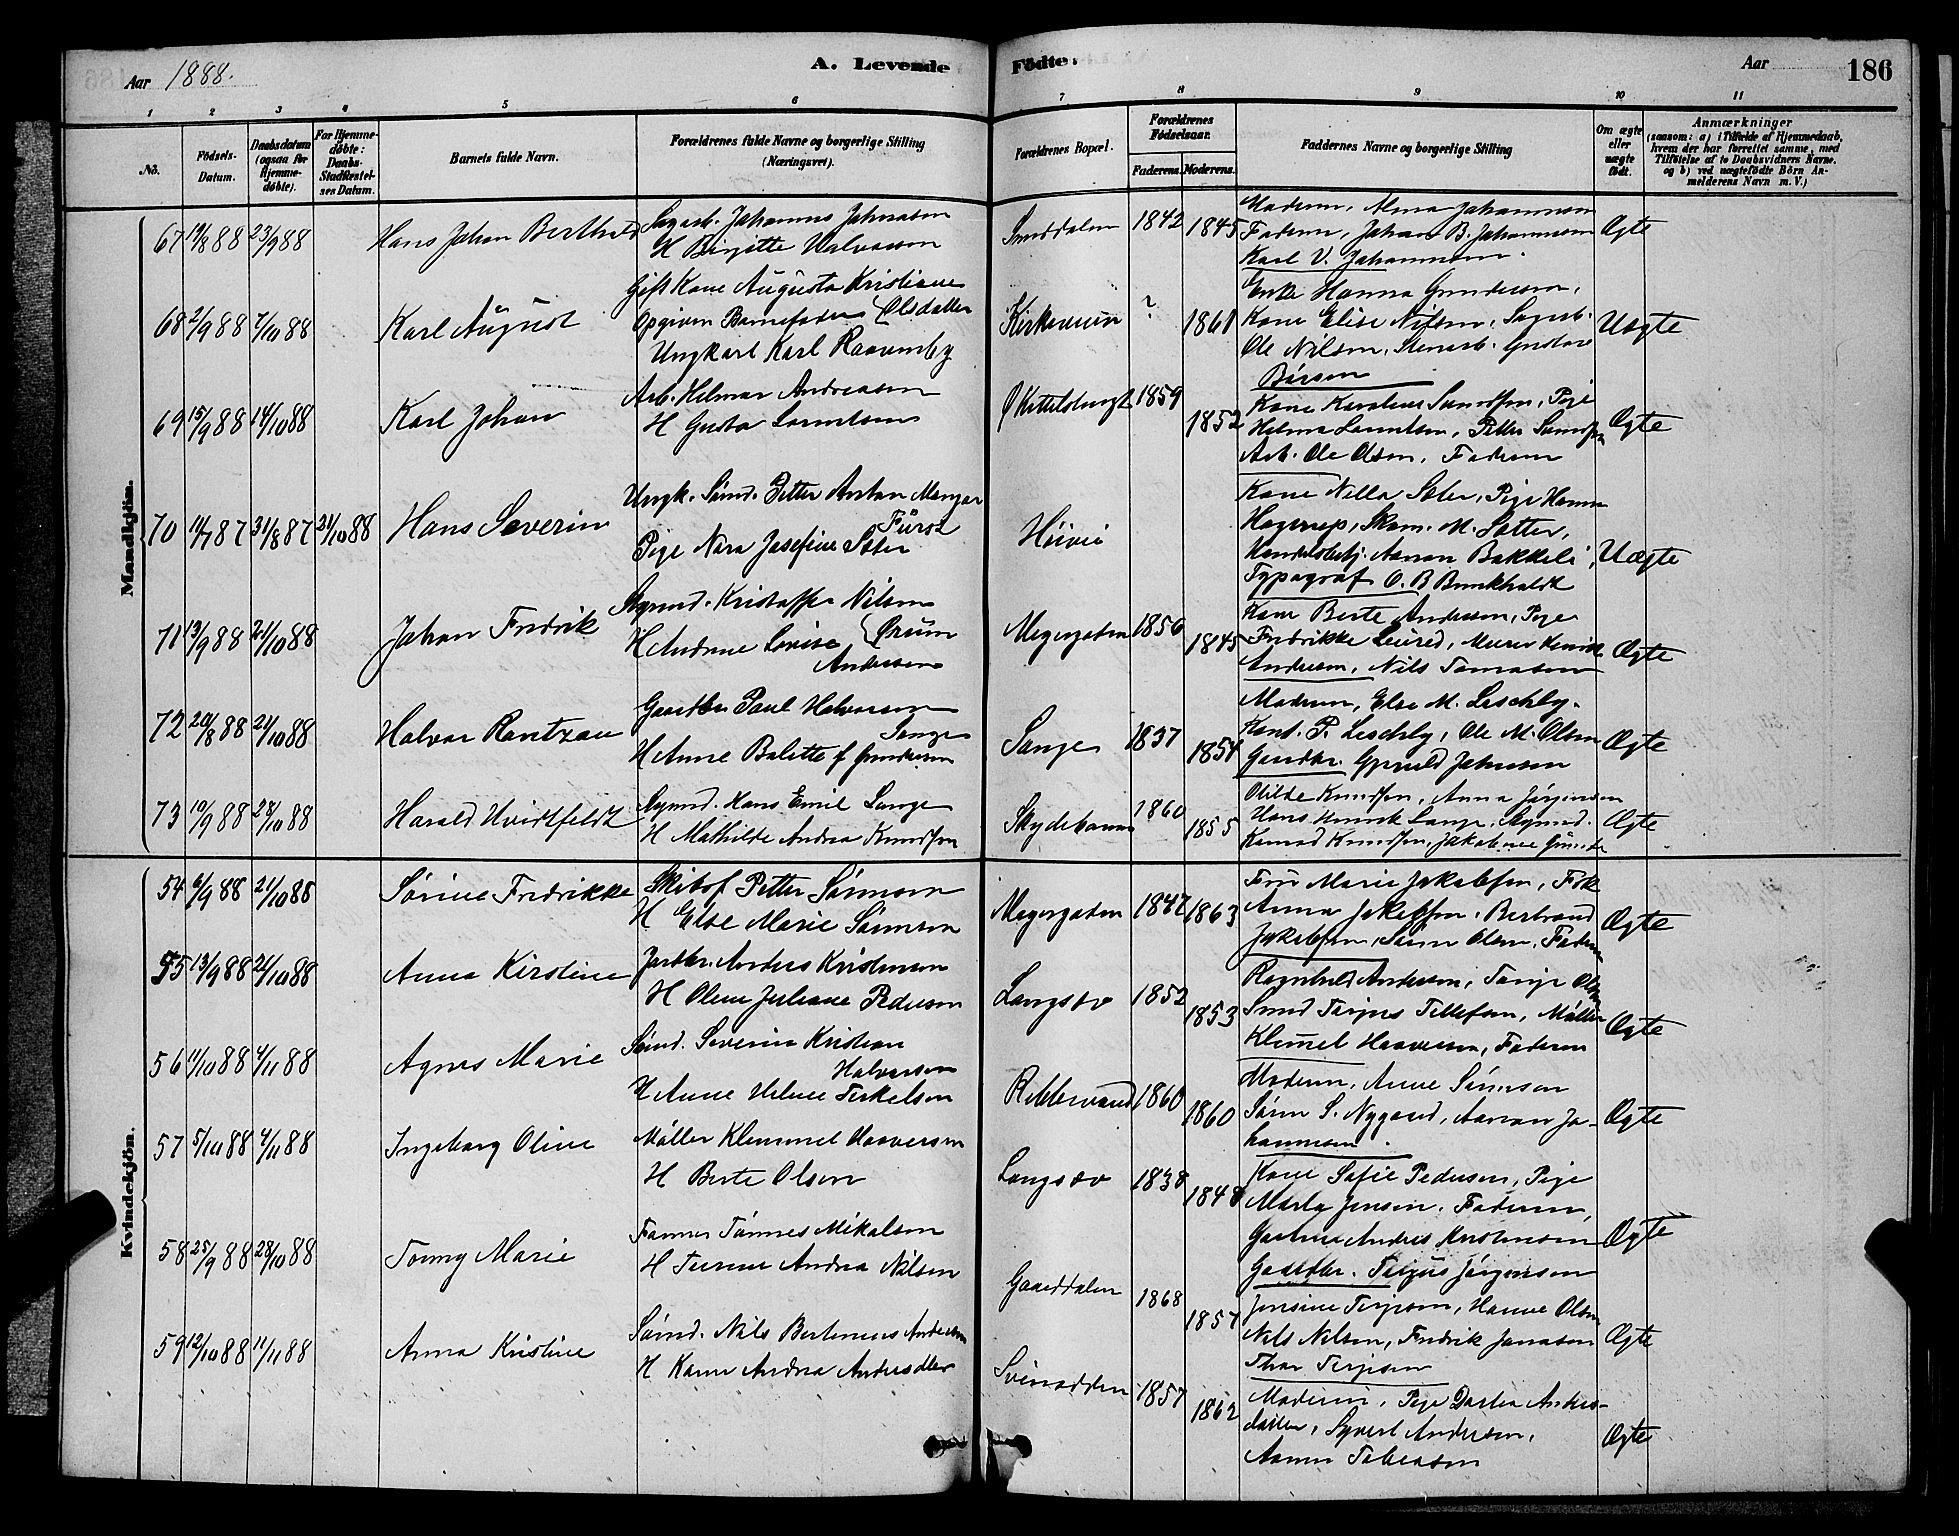 Aar 1888.
A. Levende Födte.
Aar
186
1 2 3 4 5 6 7 8 9 10 11
No.
Födsels-Datum.
Daabsdatum (ogsaa for Hjemmedöbte).
For Hjemmedöbte: Daabs-Stadfæstelses Datum.
Barnets fulde Navn.
Forældrenes fulde Navne og borgerlige Stilling (Næringsvei).
Forældrenes Bopæl.
Forældrenes Födselsaar.
Faderens. Moderens.
Faddernes Navne og borgerlige Stilling
Om ægte eller uægte födt.
Anmærkninger
(saasom: a) i Tilfælde af Hjemmedaab, hvem der har forrettet samme, med Tilföielse af to Daabsvidners Navne, og b) ved uægtefödte Börn Anmelderens Navn m. V.)
Mandkjön.
67 19/8 88 23/9 88 Hans Johan Berthold
Johannes Johnsen
H Birgitte Halvorsen
1842 1845
Moderen, Alma Johannesen
Faderen, Johan B. Johannesen
Karl V. Johannesen.
Ægte
68 2/9 88 7/10 88 Karl August
Gift Kone Augusta Kristiane
Opgiven Barnefader (Olsdatter
Ungkarl Karl
? 1861
Enke Hanna Gundersen,
Kone Elise Nilsen, Sagarb.
Ole Nilsen, Stenarb. Gustav
Börsen
Uægte
69 15/9 88 14/10 88 Karl Johan
Arb. Helmer Andreasen
H Gusta Lorentsen
1859 1852
Kone Karoline Samdsen, Pige
Helma Lorentsen, Petter
Arb. Ole Olsen, Faderen
Ægte
70 14/7 87 31/8 87 21/10 88 Hans Severin
Ungk. Sömd. Petter Anton
Fürst
Pige Nora Josefine Sater
Höivei
Kone Nella Sater, Pige Hanna
M. Satter,
Aanon Bakkeli,
Typograf O. B Bunkholdt
Uægte
71 13/9 88 21/10 88 Johan Fredrik
Kristoffer Nilsen
H Andrine Lovise (Örum
Andersen
Meyergaden 1856 1845
Kone Berte Andersen, Pige
Fredrikke Leired, Murer Henrik
Andersen, Nils Tomasen
Ægte
72 20/8 88 21/10 88 Halvor Rantzau
Gaardbr Paul Halvorsen
Lange
H Anne Bolette f Gundersen
Lange 1837 1854
Moderen, Else M. Leschly.
Kand. P. Leschly, Ole M. Olsen
Gaardbr. Johnsen
Ægte
73 19/9 88 28/10 88 Harald Hvidtfeldt
Hans Emil Lange
H Mathilde Andrea Knudsen
Skydebanen 1860 1855
Otilde Knudsen, Anna Jörgensen
Hans Henrik Lange,
Konrad Knudsen,
Ægte
Kvindekjön.
54 6/9 88 21/10 88 Sörine Fredrikke
Skibsf Petter Sörensen
H Else Marie Sörensen
Meyergaden 1847 1863
Fru Marie Jakobsen, Frk
Anna Jakobsen, Bertrand
Jakobsen, Sören Olsen, Faderen
Ægte
55 13/9 88 21/10 88 Anna Kirstine
Anders Kristensen
H Oline Juliane Pedersen
Langsæv 1852 1853
Ragnhild Andersen, Tarje Olsen
Smed Terjus Tellefsen, Möller
Klemet Haaversen, Faderen
Ægte
56 11/10 88 4/11 88 Agnes Marie
Sömd. Severin Kristian
Halvorsen
H Anne Helene Terkelsen
1860 1860
Moderen, Anne Sörensen
Sören S. Nygaard, Aanon Johannesen
Ægte
57 5/10 88 4/11 88 Ingeborg Oline
Möller Klemmet Haaversen
H Berte Olsen
Langsæv 1838 1848
Kone Sofie Pedersen, Pige
Marta Jensen, Faderen,
Gaardbr Anders Kristensen
Gaardbr. Terjus Jörgensen
Ægte
58 25/9 88 28/10 88 Tomy Marie
Tönnes Mikalsen
H Andrea Nilsen
1868 1857
Jensine Terjesen, Hanne Olsen
Nils Nilsen, Fredrik Jonassen
Thor Terjesen
Ægte
59 12/10 88 11/11 88 Anna Kristine
Sömd. Nils Bertenius Andersen
H Karen Andrea Andersdtter
Svinodden 1857 1862
Moderen, Pige Dortea Anders-
datter, Syvert Andersen,
Aanon Tobiasen
Ægte